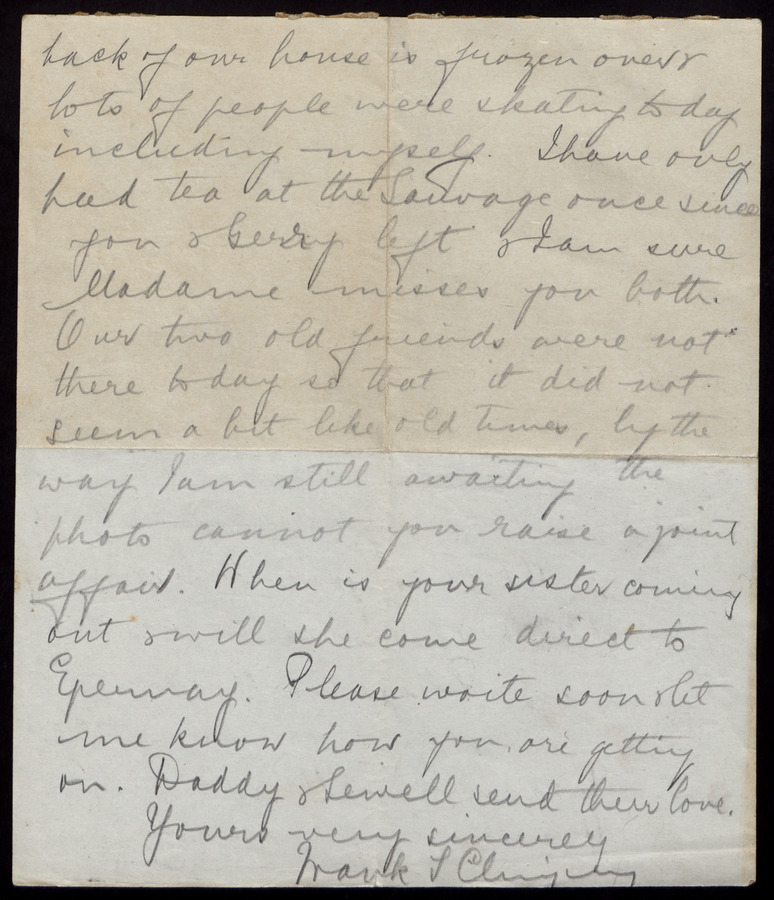 back of our house is frozen over &
lots of people were skating to day
including myself. I have only
had tea at the Sauvage once since
you & Gerry left & I am sure
Madame misses you both.
Our two old friends were not
there to day so that it did not
seem a bit like old times, by the
way I am still awaiting the
photo cannot you raise a joint
affair. When is your sister coming
out & will she come direct to
Epernay. Please write soon & let
me know how you are getting
on. Daddy & Sewell send their love.
Yours very sincerely
Frank S